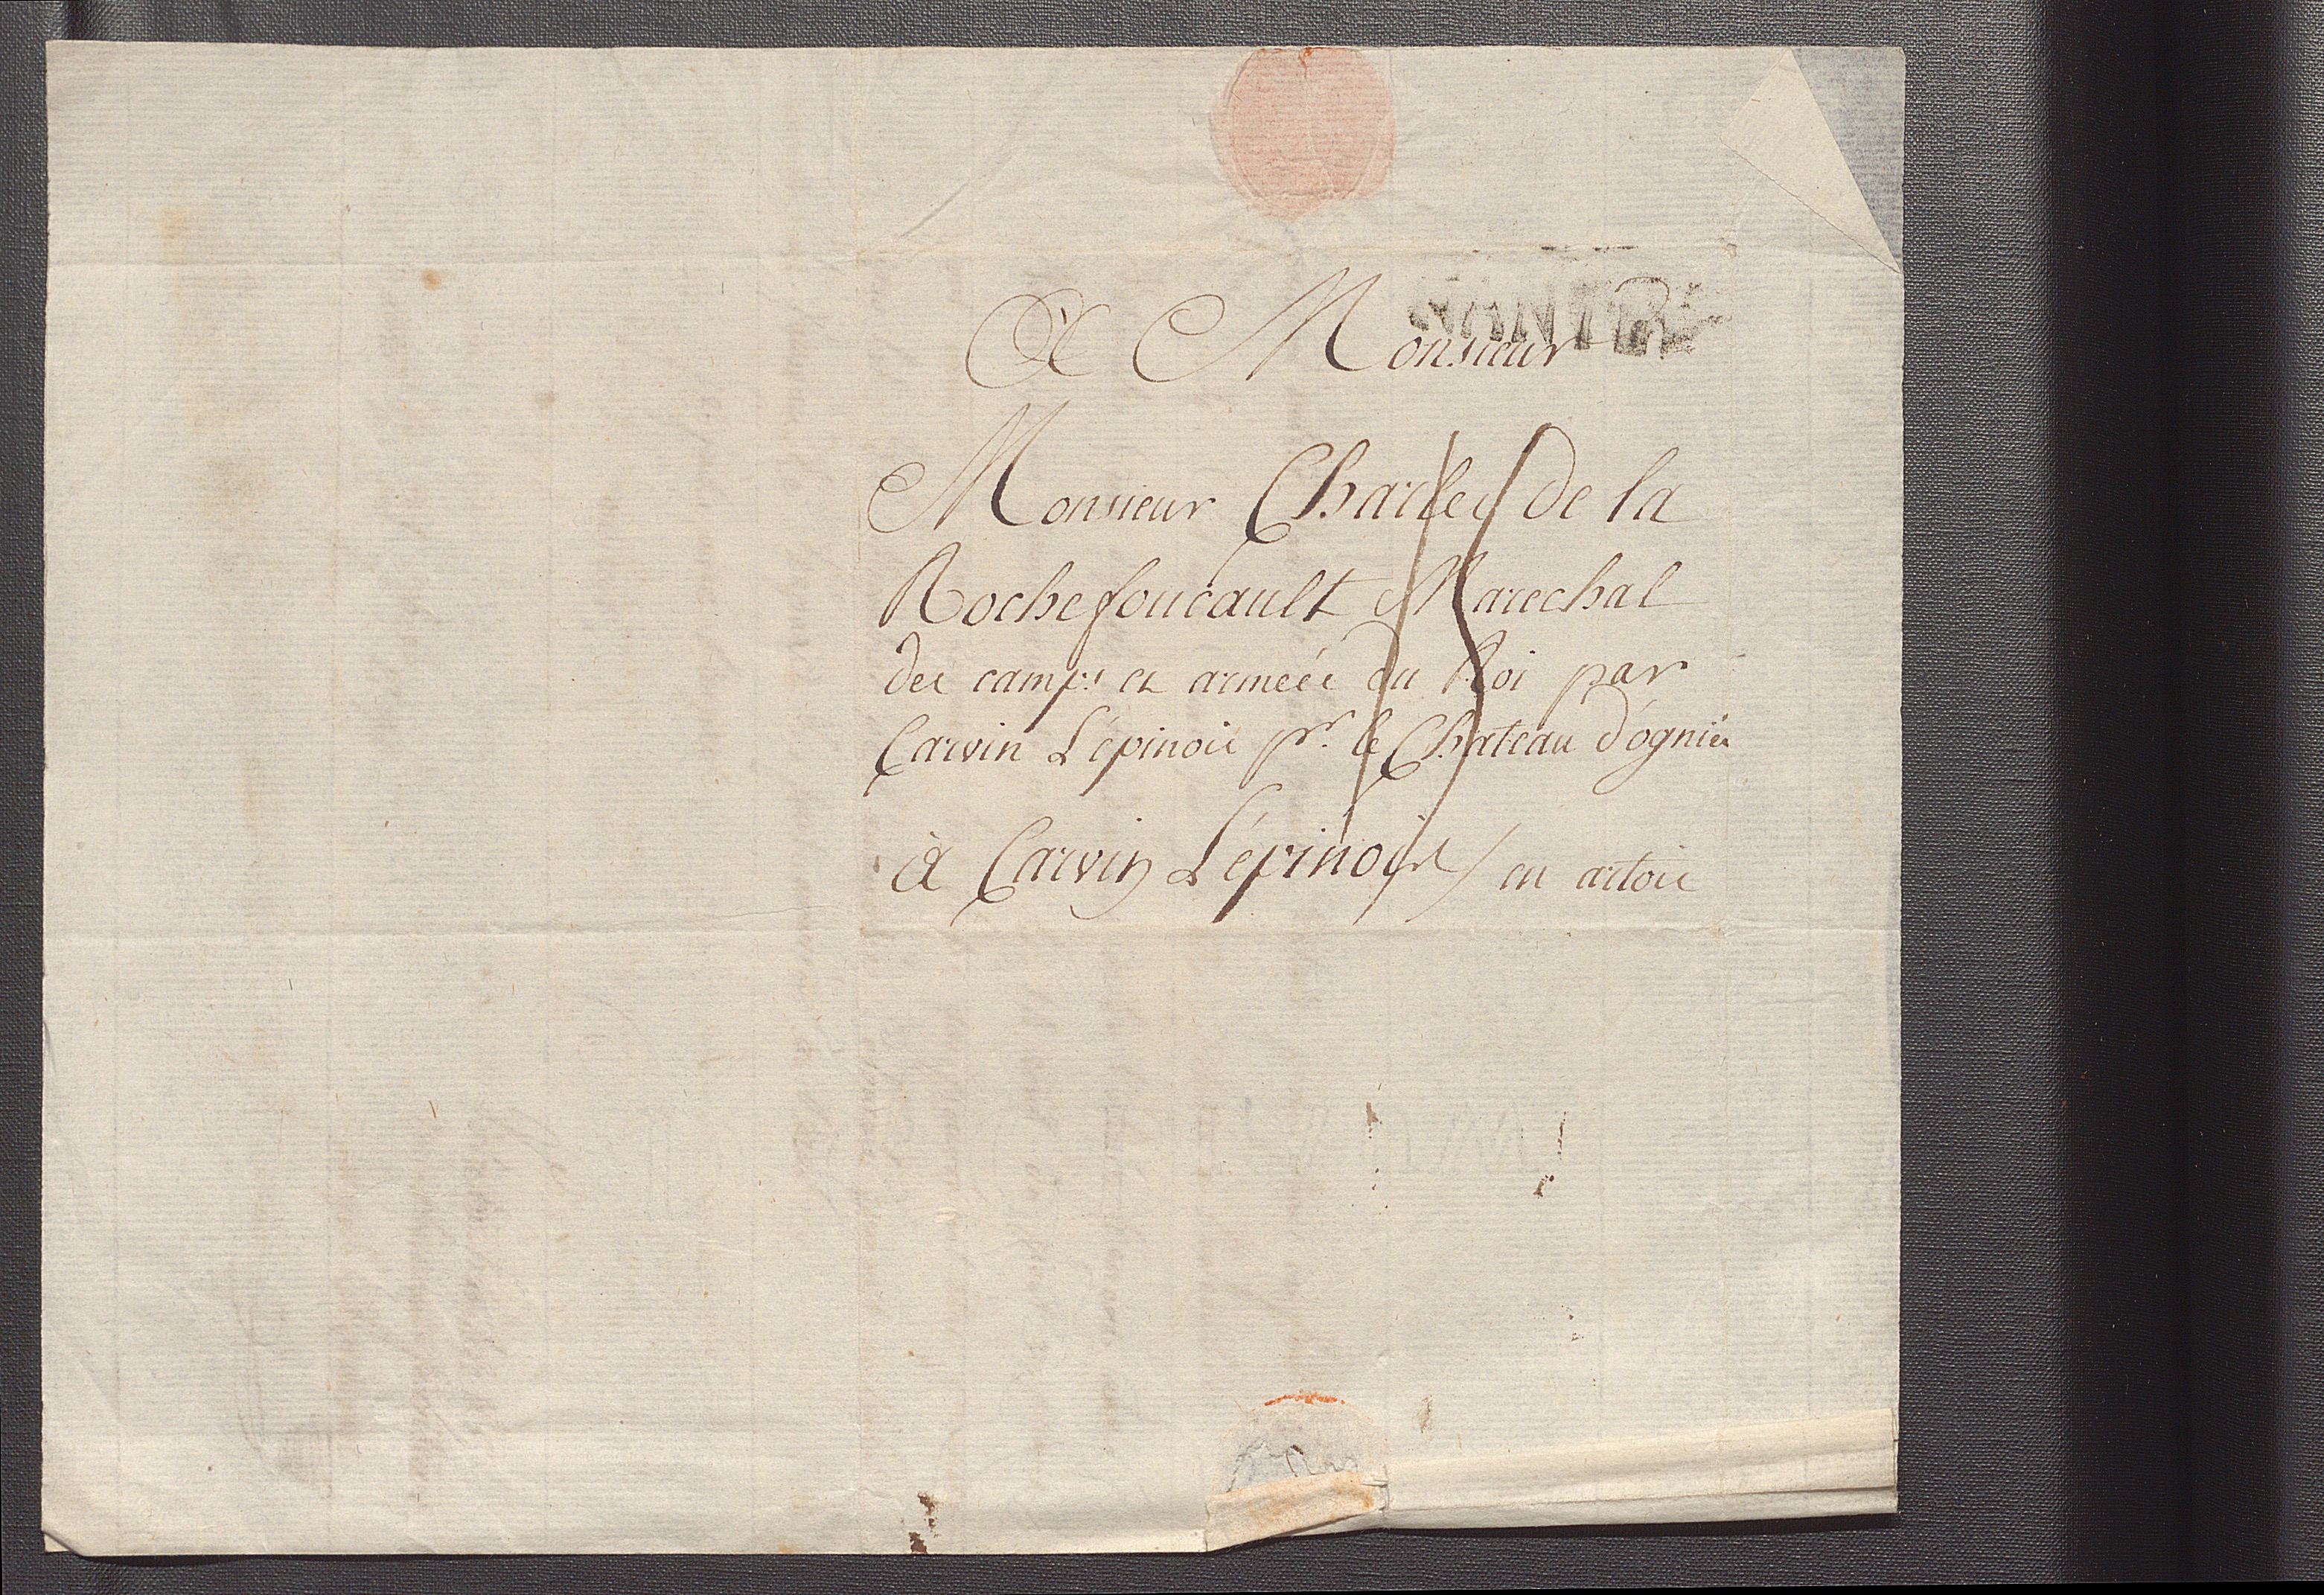 A Monsieur
Monsieur Charles de la
Rochefoucault Marechal
des camps et armées du Roi par
Carvin L'épinoie pr. le Chateau d'ognies
à Carvin L'épinoie / en artois